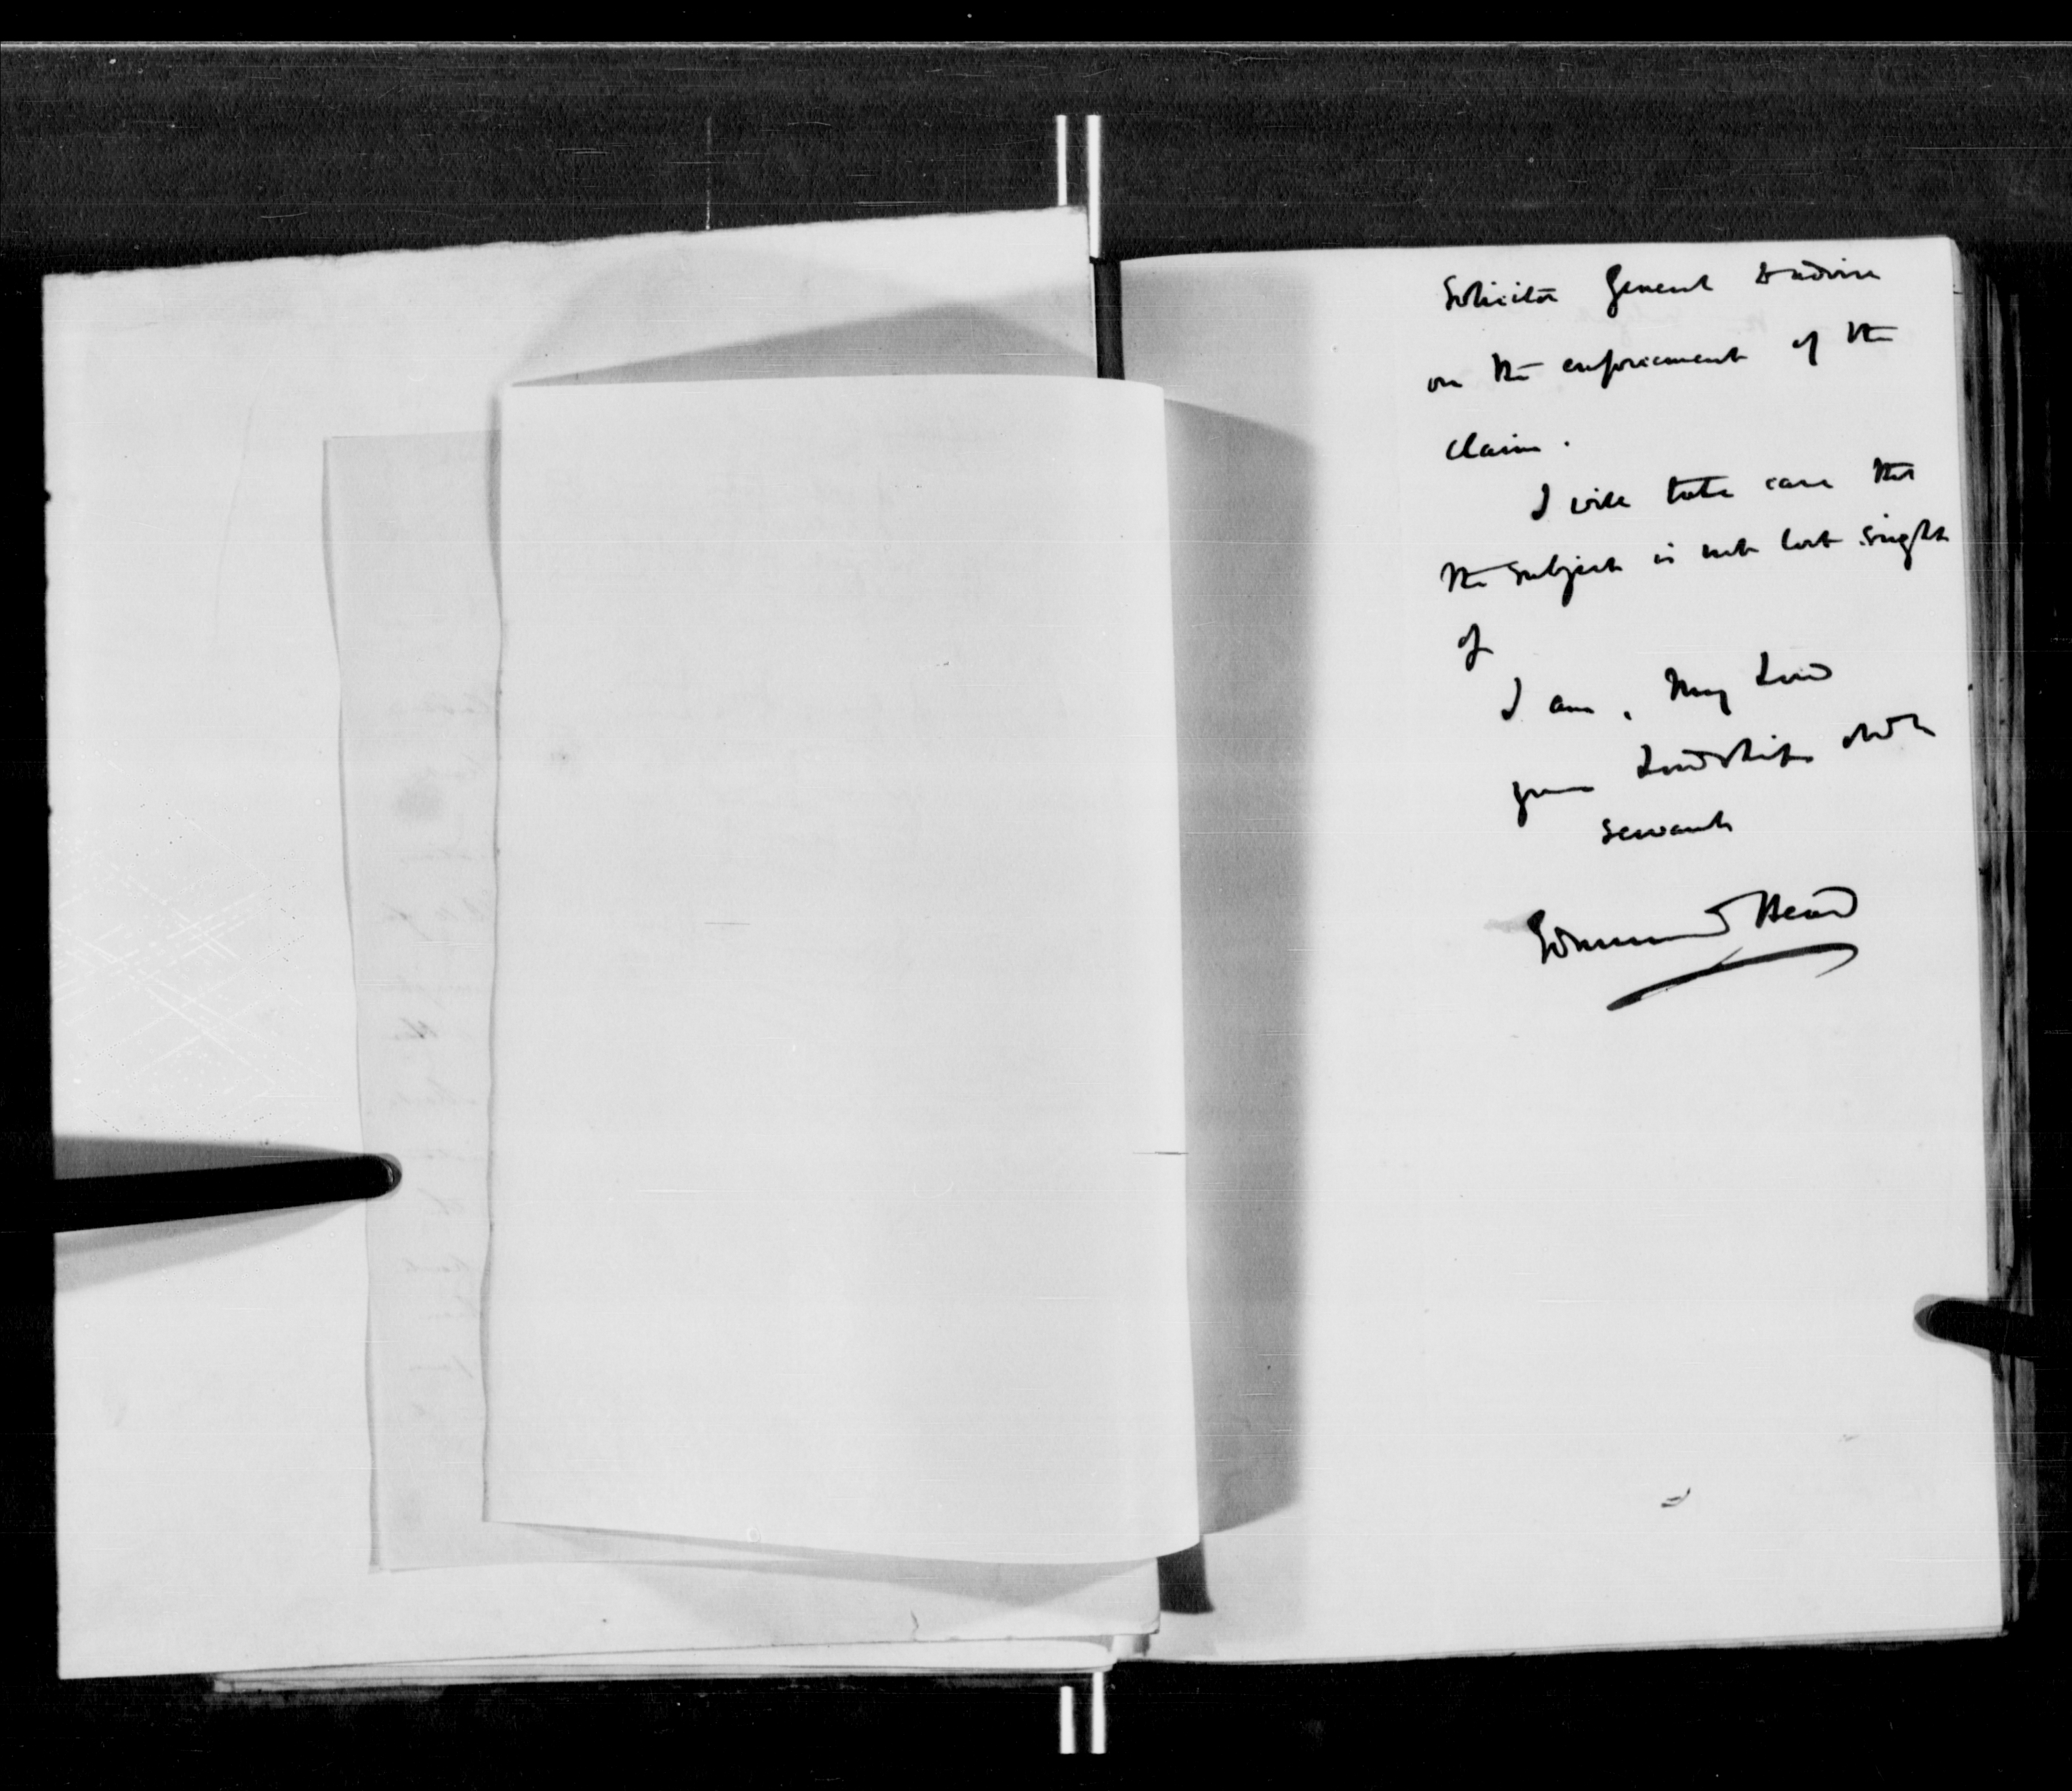 Solicitor General to advise
on the enforcement of the
claim.
I will take care that
the subject is not lost sight
of
I am, My Lord
your Lordships obdt
servant
Edmund Head